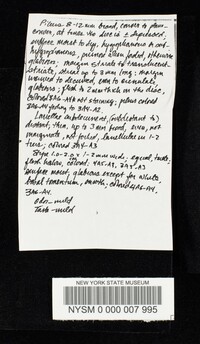 Pileus 8-12 mm broad, convex to plano-
convex, at times the disc is depressed,
surface moist to dry, hygrophanous
glabrous; margin striate to translucent-
striate, striae up to 3 mm long; margin
incurved to decurved, even to crenulate,
glabrous; flesh to 2 mm thick on the disc,
colored 3A6-A8 not staining; pileus colored
3A4-A4.
Lamellae subdecurrent, (subdistant to)
distant, thin, up to 3 mm broad, even, not
marginate, not forked, lamellulae in 1-2
tiers; colored 3A4-A3
Stipe 1.0-2.0 x 1-2 mm wide, equal, terete,
flesh hollow, colored 4A5-A8, 3A4-A3
surface moist, glabrous except for white
basal tomentum, smooth; colored 4A6-A4,
3A6-A4.
Odor - mild
Taste - mild
NEW YORK STATE MUSEUM
NYSM 0 000 007 995